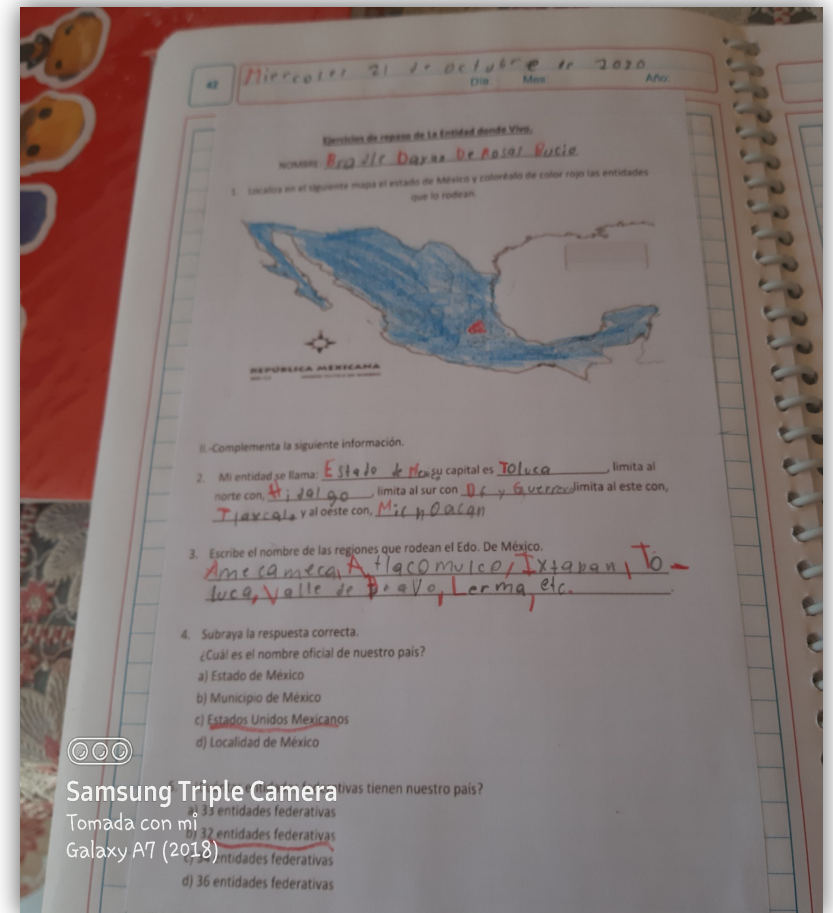 42 Miercoles 21 de octubre de 2020
Día Mes Año:
Ejercicios de repaso de La Entidad donde Vivo.
NOMBRE: De Rosas Rucio
1. Localiza en el siguiente mapa el estado de México y coloréalo de color rojo las entidades
que lo rodean.
REPÚBLICA MEXICANA
II.-Complementa la siguiente información.
2. Mi entidad se llama: Estado de Mexi su capital es Toluca, limita al
norte con, Hidalgo, limita al sur con Df y Guerrero limita al este con,
Tlaxcala y al oeste con, Michoacan
3. Escribe el nombre de las regiones que rodean el Edo. De México.
Amecameca, Atlacomulco, Ixtapan, To-
luca, Valle de Bravo, Lerma, etc.
4. Subraya la respuesta correcta.
¿Cuál es el nombre oficial de nuestro país?
a) Estado de México
b) Municipio de México
c) Estados Unidos Mexicanos
d) Localidad de México
tivas tienen nuestro país?
a) 33 entidades federativas
b) 32 entidades federativas
c) 34 entidades federativas
d) 36 entidades federativas
Samsung Triple Camera
Tomada con mi
Galaxy A7 (2018)